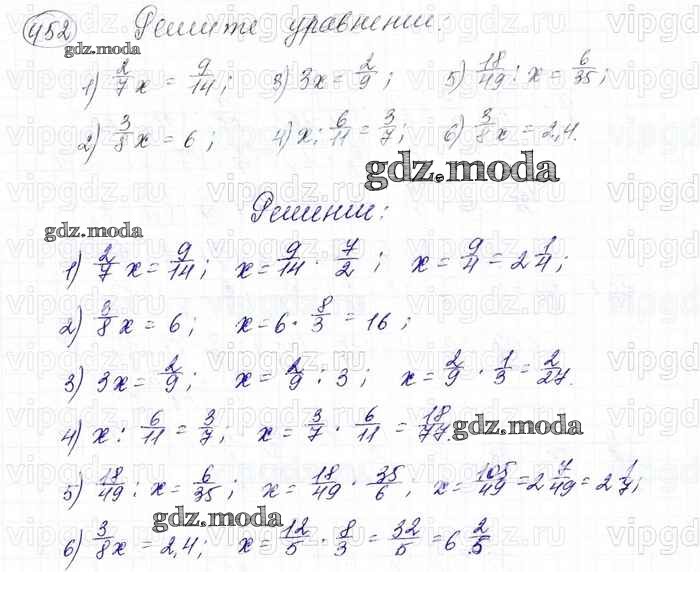 452 Решите уравнения:
1) 2/7 x = 9/14; 3) 3x = 2/9; 5) 18/49 : x = 6/35;
2) 3/8 x = 6; 4) x : 6/11 = 3/7; 6) 3/8 x = 2,4.
gdz.moda
gdz.moda
Решении:
gdz.moda
1) 2/7 x = 9/14; x = 9/14 · 7/2; x = 9/4 = 2 1/4;
2) 3/8 x = 6; x = 6 · 8/3 = 16;
3) 3x = 2/9; x = 2/9 : 3; x = 2/9 · 1/3 = 2/27.
4) x : 6/11 = 3/7; x = 3/7 · 6/11 = 18/77. gdz.moda
5) 18/49 : x = 6/35; x = 18/49 · 35/6; x = 105/49 = 2 7/49 = 2 1/7;
gdz.moda
6) 3/8 x = 2,4; x = 12/5 · 8/3 = 32/5 = 6 2/5.
vipgdz.ru